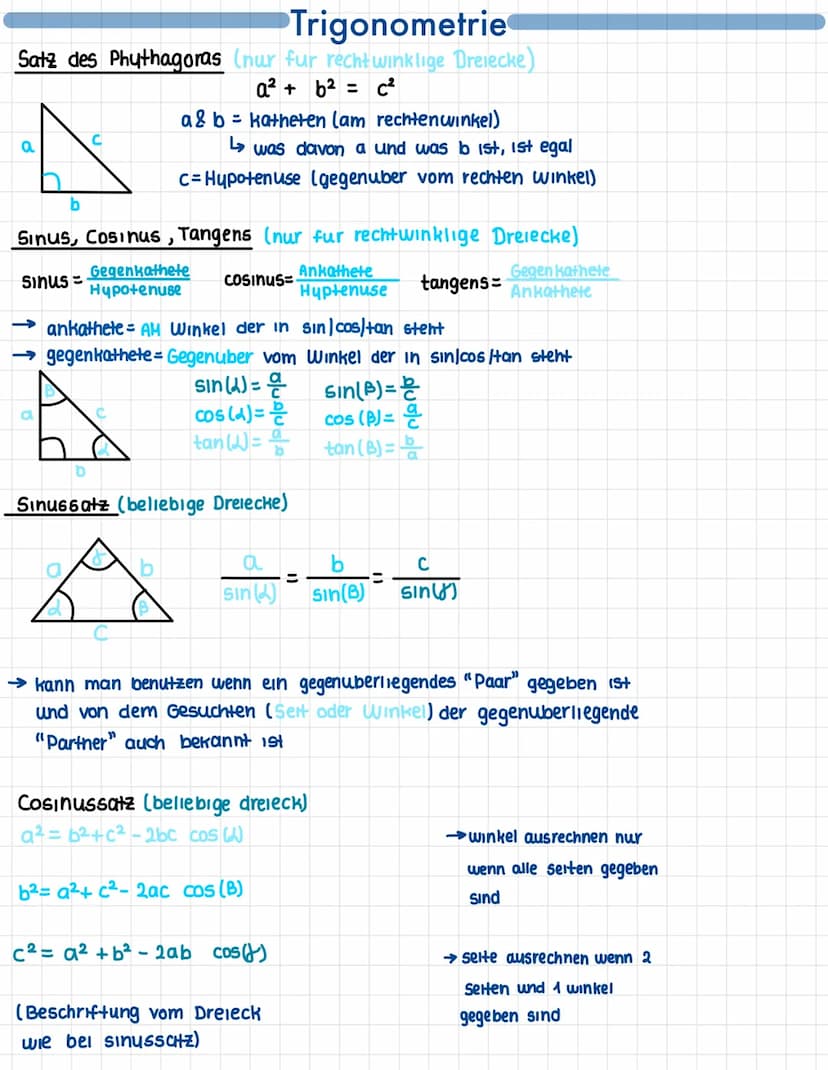 Trigonometrie
Satz des Phythagoras (nur fur rechtwinklige Dreiecke)
a² + b² = c²
a & b = Katheten (am rechtenwinkel)
↳ was davon a und was b ist, ist egal
c = Hypotenuse (gegenuber vom rechten Winkel)
a
c
b
Sinus, Cosinus, Tangens (nur fur rechtwinklige Dreiecke)
sinus = Gegenkathete / Hypotenuse cosinus = Ankathete / Hyptenuse tangens = Gegenkathete / Ankathete
→ ankathete = AM Winkel der in sin/cos/tan steht
→ gegenkathete = Gegenuber vom Winkel der in sin/cos/tan steht
β
a
c
α
b
sin(α) = a/c sin(β) = b/c
cos(α) = b/c cos(β) = a/c
tan(α) = a/b tan(β) = b/a
Sinussatz (beliebige Dreiecke)
γ
a
b
α
β
c
a/sin(α) = b/sin(β) = c/sin(γ)
→ kann man benutzen wenn ein gegenuberliegendes "Paar" gegeben ist
und von dem Gesuchten (Seit oder Winkel) der gegenuberliegende
"Partner" auch bekannt ist
Cosinussatz (beliebige dreieck)
a² = b² + c² - 2bc cos(α)
b² = a² + c² - 2ac cos(β)
c² = a² + b² - 2ab cos(γ)
(Beschriftung vom Dreieck
wie bei sinussatz)
→ winkel ausrechnen nur
wenn alle seiten gegeben
sind
→ seite ausrechnen wenn 2
Seiten und 1 winkel
gegeben sind